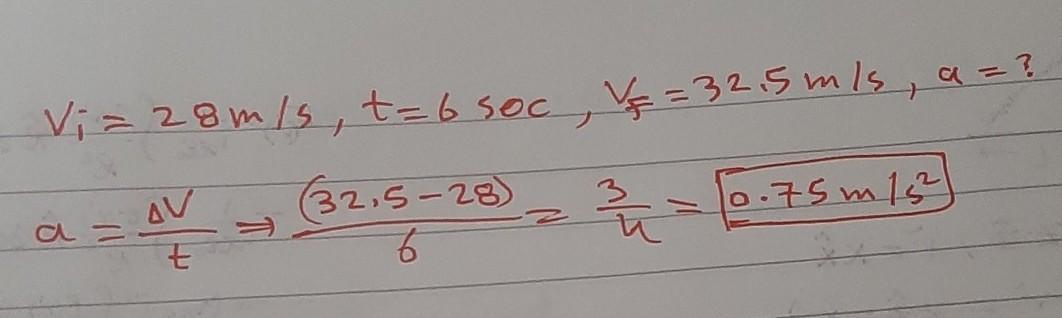 Vi = 28 m/s, t = 6 sec, Vf = 32.5 m/s, a = ?
a = ΔV/t ⇒ (32.5 - 28)/6 = 3/4 = 0.75 m/s²